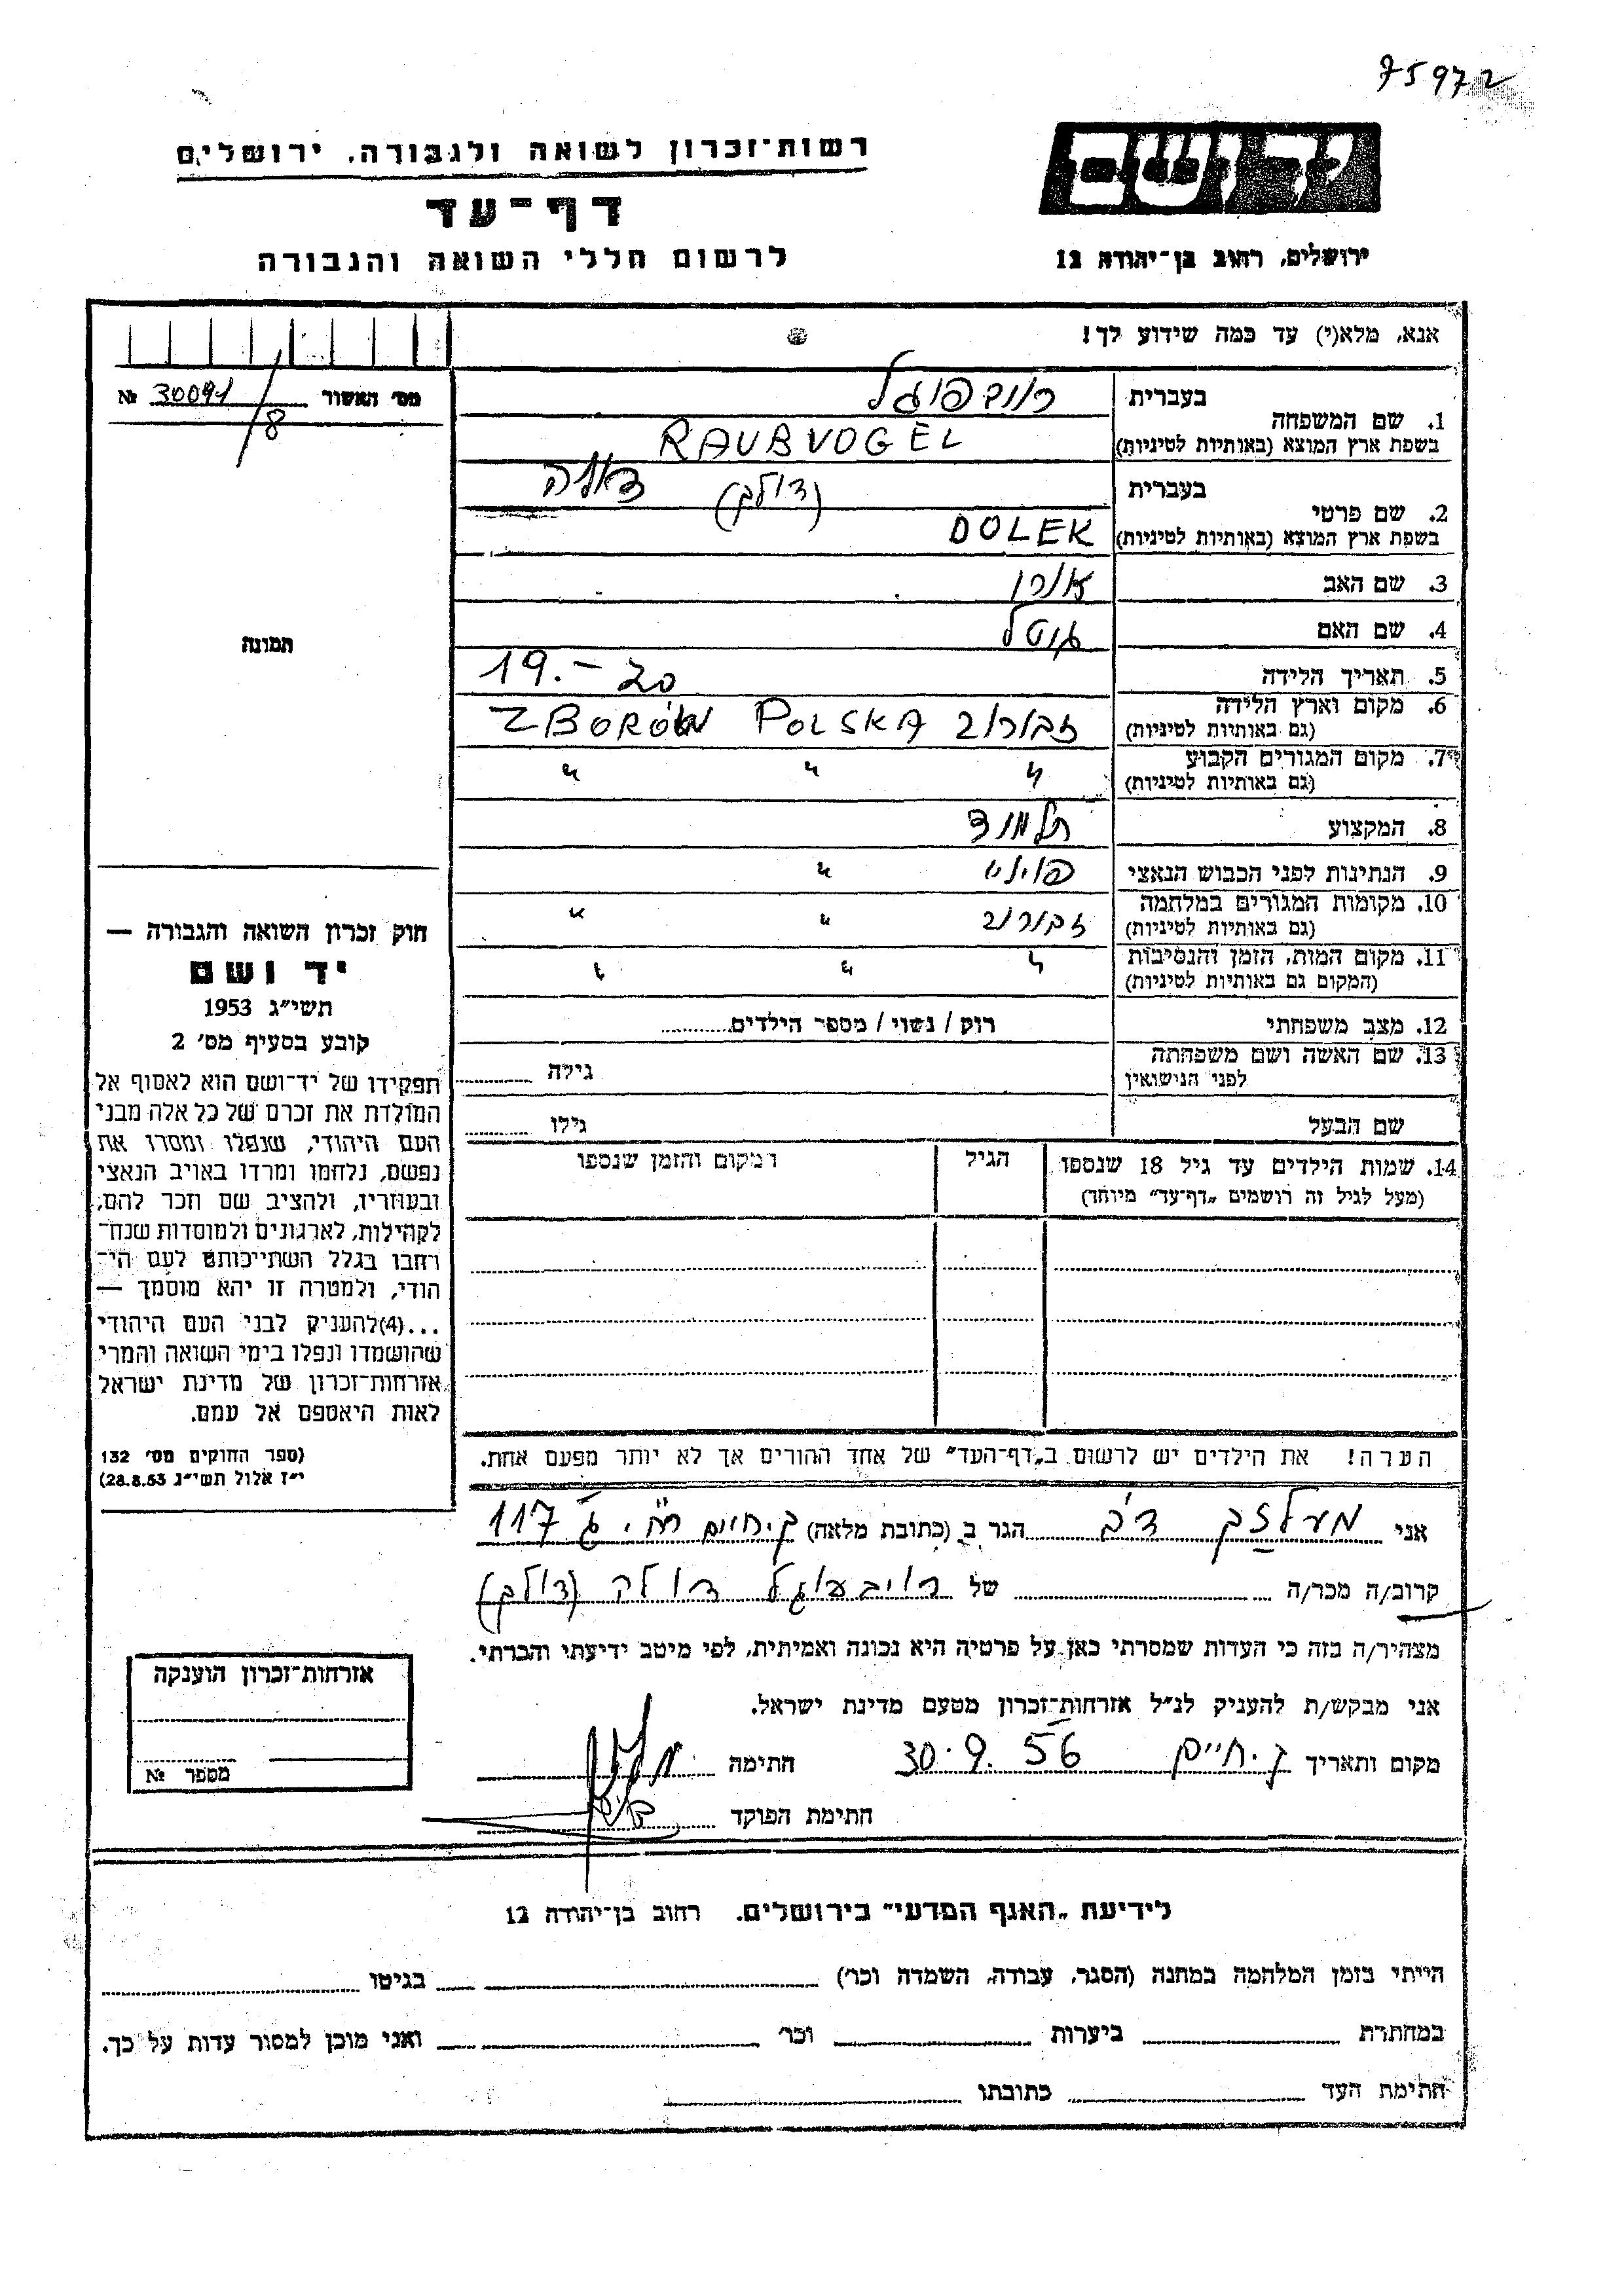 75972
יד ושם
ירושלים, רחוב בן־יהודה 12
רשות־זכרון לשואה ולגבורה, ירושלים
דף־עד
לרשום חללי השואה והגבורה
אנא, מלא(י) עד כמה שידוע לך!
מס׳ האשור 30091/8 №
בעברית
1. שם המשפחה
רויבפוגל
בשפת ארץ המוצא (באותיות לטיניות) RAUBVOGEL
בעברית
2. שם פרטי
(דולק)
בשפת ארץ המוצא (באותיות לטיניות) DOLEK
3. שם האב
4. שם האם גיטל
5. תאריך הלידה 19.-20
6. מקום וארץ הלידה זבורוב ZBORÓW POLSKA
(גם באותיות לטיניות)
7. מקום המגורים הקבוע " " "
(גם באותיות לטיניות)
8. המקצוע תלמיד
9. הנתינות לפני הכבוש הנאצי פולני "
10. מקומות המגורים במלחמה זבורוב " "
(גם באותיות לטיניות)
11. מקום המות, הזמן והנסיבות " " "
(המקום גם באותיות לטיניות)
12. מצב משפחתי רוק / נשוי / מספר הילדים
13. שם האשה ושם משפחתה
לפני הנישואין גילה
שם הבעל גילו
14. שמות הילדים עד גיל 18 שנספו הגיל מקום והזמן שנספו
(מעל לגיל זה רושמים „דף־עד״ מיוחד)
תמונה
חוק זכרון השואה והגבורה —
יד ושם
תשי״ג 1953
קובע בסעיף מס׳ 2
תפקידו של יד־ושם הוא לאסוף אל
המולדת את זכרם של כל אלה מבני
העם היהודי, שנפלו ומסרו את
נפשם, נלחמו ומרדו באויב הנאצי
ובעוזריו, ולהציב שם וזכר להם,
לקהילות, לארגונים ולמוסדות שנח־
רחבו בגלל השתייכותם לעם הי־
הודי, ולמטרה זו יהא מוסמך —
...(4)להעניק לבני העם היהודי
שהושמדו ונפלו בימי השואה והמרי
אזרחות־זכרון של מדינת ישראל
לאות היאספם אל עמם.
(ספר החוקים מס׳ 132
י״ז אלול תשי״ג 28.8.53)
הערה! את הילדים יש לרשום ב„דף־העד״ של אחד ההורים אך לא יותר מפעם אחת.
אני דב הגר ב (כתובת מלאה) ק. חיים 117
קרוב/ה מכר/ה של רויבפוגל דולק (דולק)
מצהיר/ה בזה כי העדות שמסרתי כאן על פרטיה היא נכונה ואמיתית, לפי מיטב ידיעתי והכרתי.
אני מבקש/ת להעניק לנ״ל אזרחות־זכרון מטעם מדינת ישראל.
מקום ותאריך ק. חיים 30.9.56 חתימה
חתימת הפוקד
אזרחות־זכרון הוענקה
מספר №
לידיעת „האגף המדעי״ בירושלים. רחוב בן־יהודה 12
הייתי בזמן המלחמה במחנה (הסגר, עבודה, השמדה וכר׳) בגיטו
במחתרת ביערות וכר׳ ואני מוכן למסור עדות על כך.
חתימת העד כתובתו